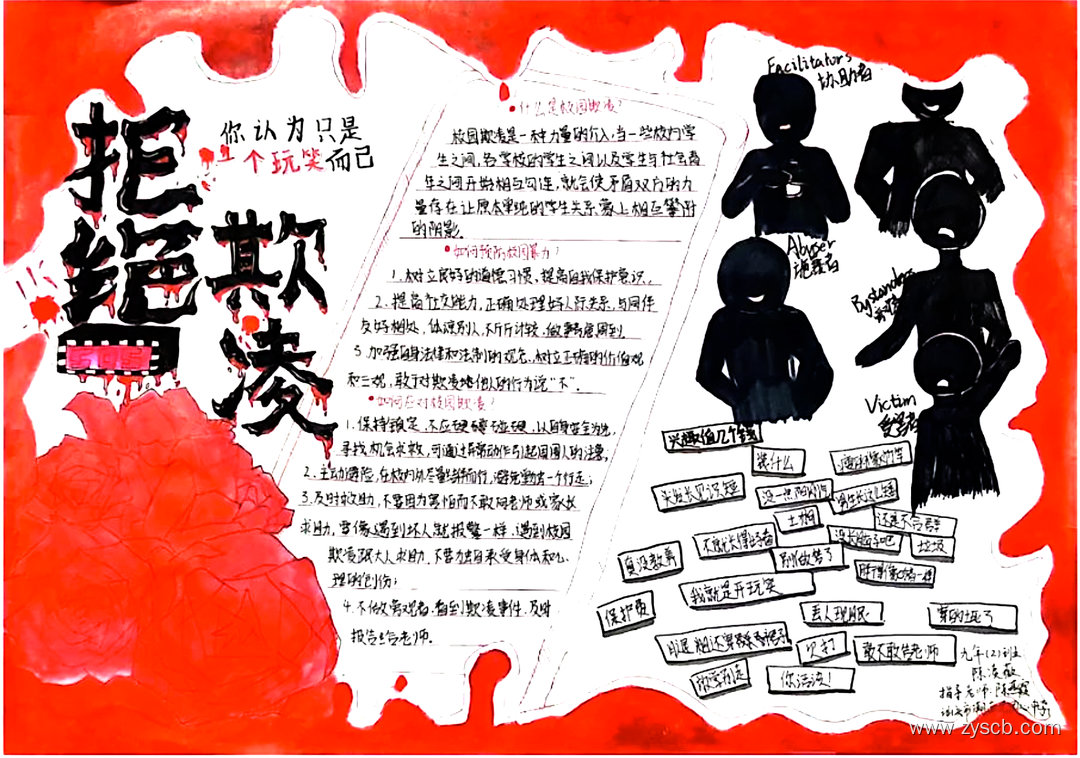 拒绝
欺凌
你认为只是
一个玩笑而已
SOS
什么是校园欺凌?
校园欺凌是一种力量的介入,当一些校内学
生之间,各学校的学生之间以及学生与社会青
年之间开始相互勾连,就会使矛盾双方的力
量存在让原本单纯的学生关系蒙上相互攀附
的阴影。
如何预防校园暴力?
1.树立良好的道德习惯,提高自我保护意识。
2.提高社交能力,正确处理好人际关系,与同伴
友好相处,体谅别人,不斤斤计较,做事考虑周到。
3.加强自身法律和法制的观念,树立正确的价值观
和三观,敢于对欺凌他人的行为说“不”。
如何应对校园欺凌?
1.保持镇定,不应硬碰硬,以自身安全为先,
寻找机会求救,可通过异常动作引起周围人的注意;
2.主动避险,在校内外尽量结伴而行,避免独自一个行走;
3.及时求助,不要因为害怕而不敢向老师或家长
求助,要像遇到坏人就报警一样,遇到校园
欺凌跟大人求助,不要独自承受身体和心
理的创伤;
4.不做旁观者,看到欺凌事件,及时
报告给老师。
Facilitators
协助者
Abuser
施暴者
Bystanders
Victim
受害者
兴趣值几个钱
装什么
头发长见识短
没一点阳刚
男生长这么矮
土狗
还是不合群
垃圾
不就长得好看
真没教养
别做梦了
没长脑子吧
胖得像
一样
我就是开玩笑
保护费
丢人现眼
穿的土死了
欠打
敢不敢告老师
你活该!
九年(2)班
陈凌薇
指导老师:陈燕霞
www.zyscb.com